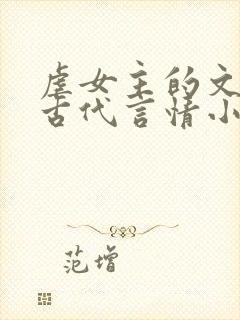 虐女主的文
古代言情小
范增